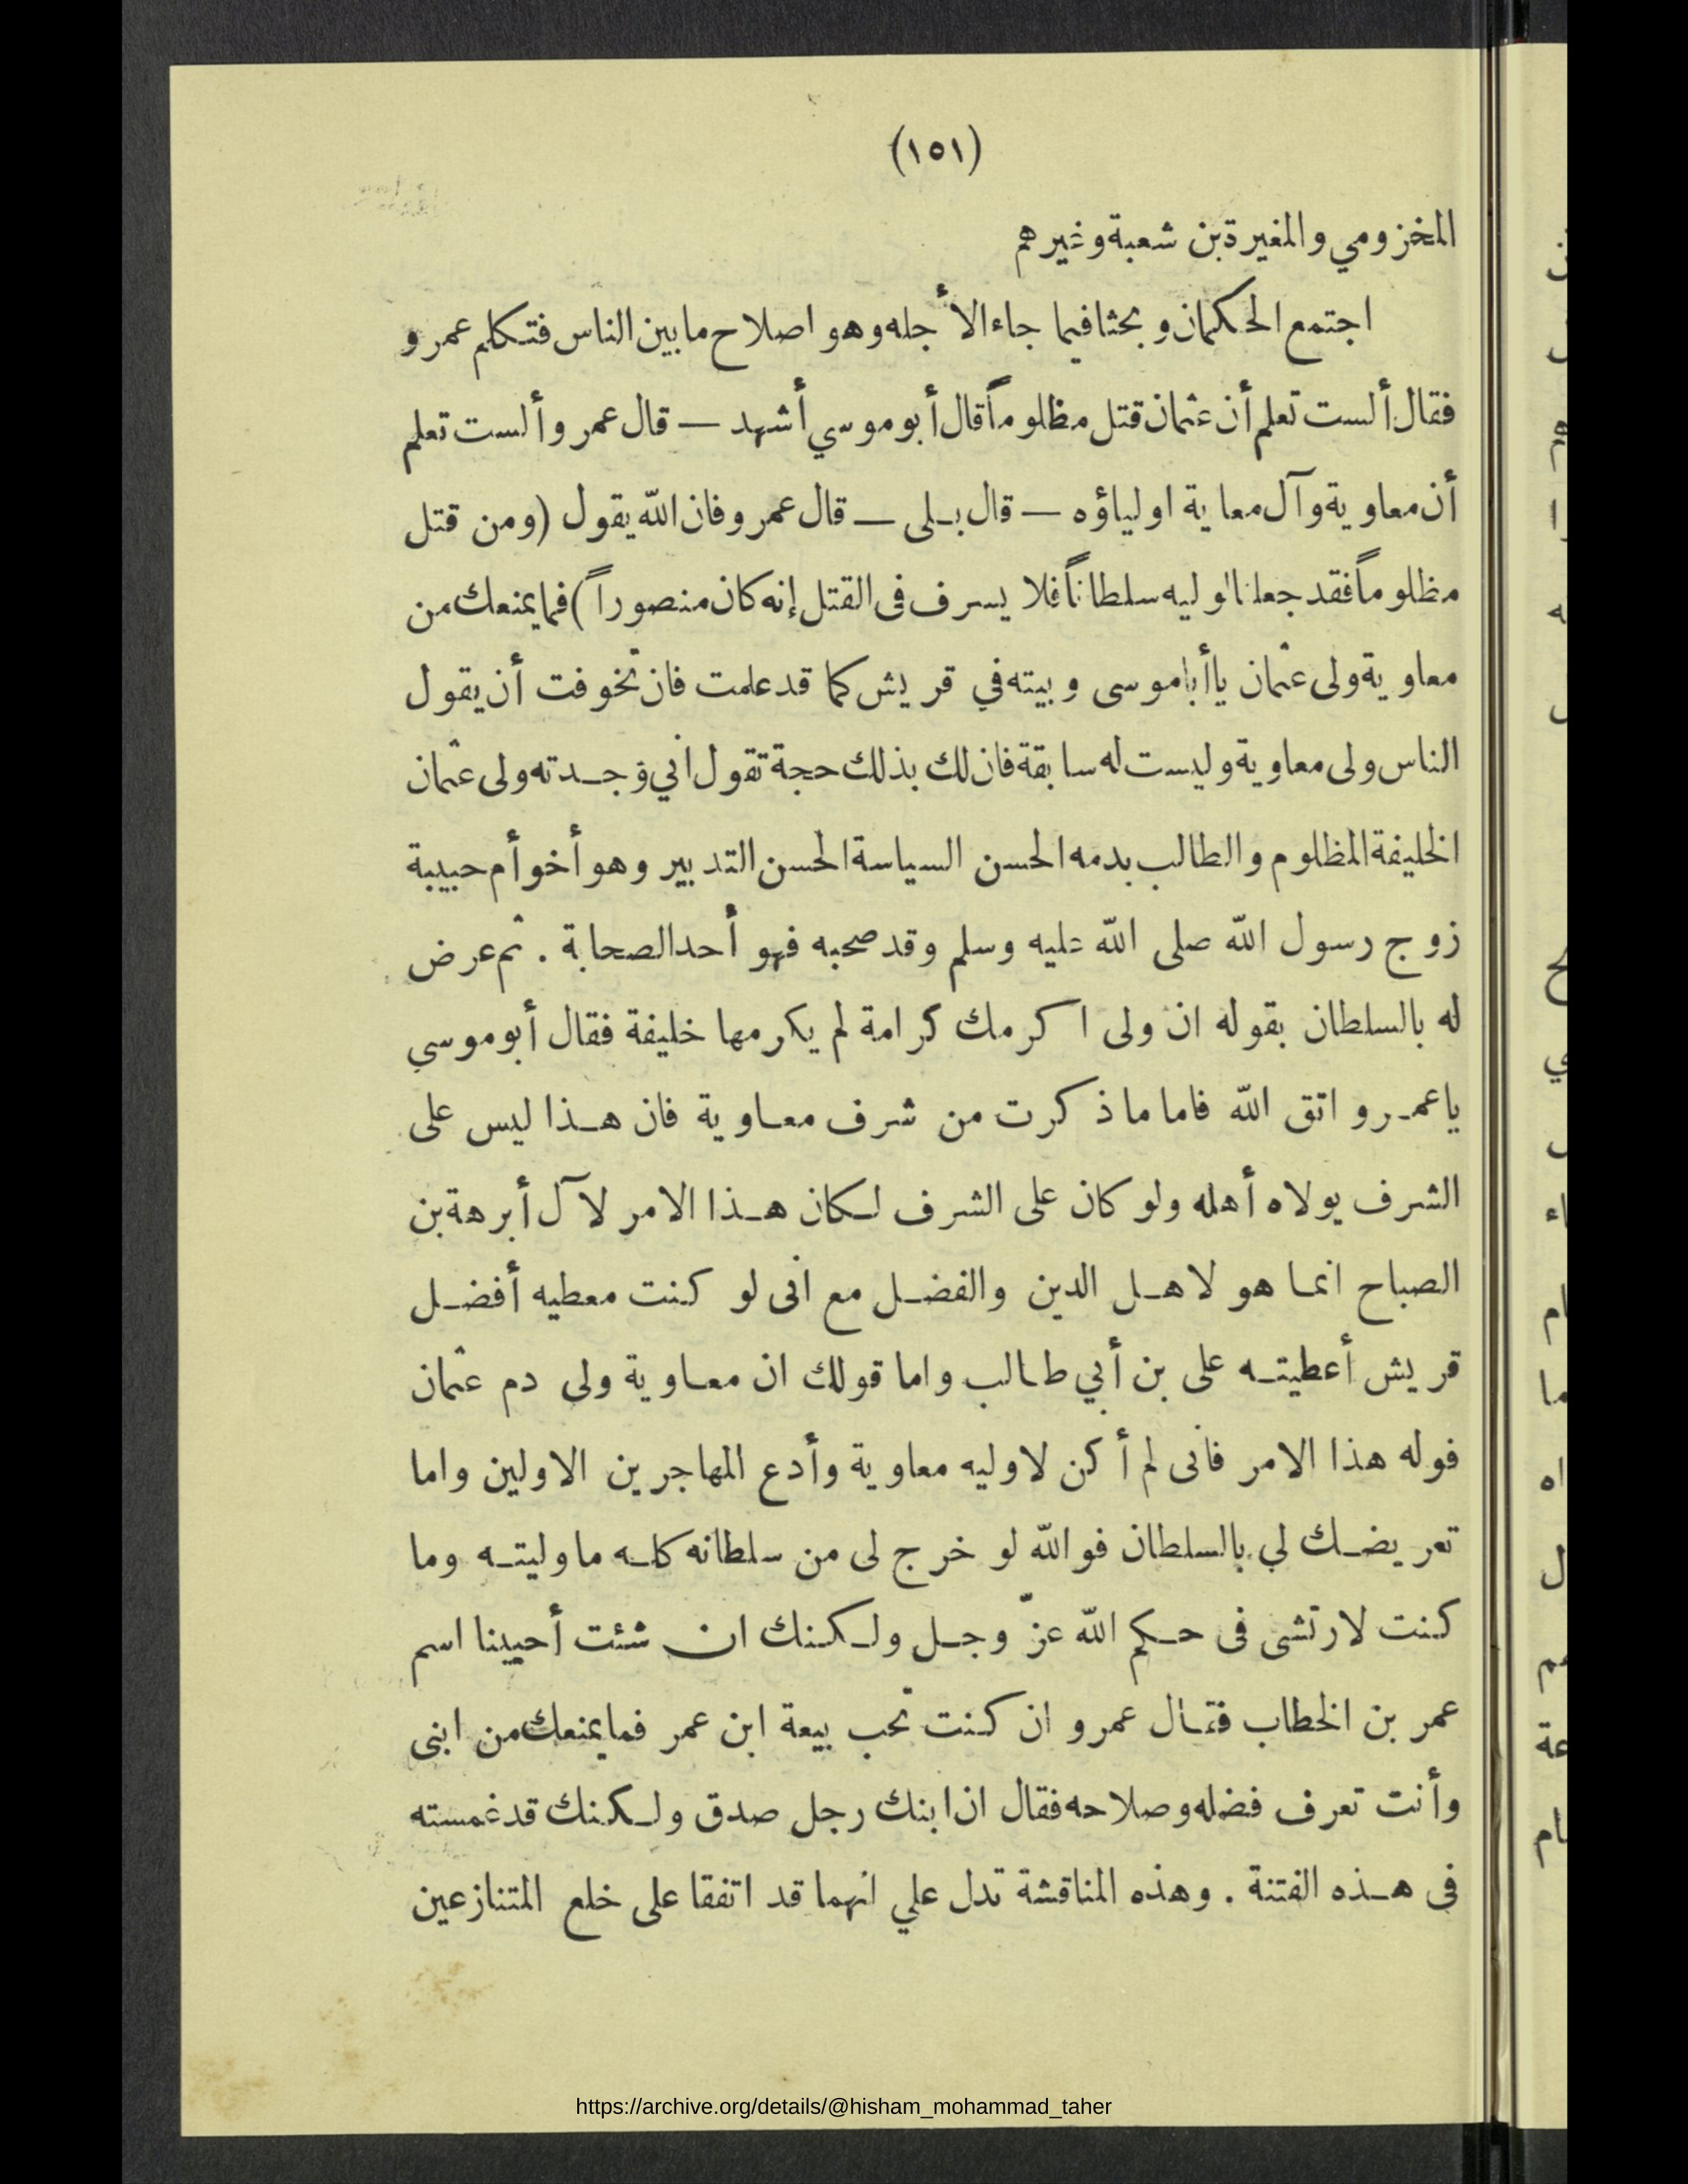 (١٥١)
المخزومي والمغيرة بن شعبة وغيرهم
اجتمع الحكمان وبحثا فيما جاءا لأجله وهو اصلاح ما بين الناس فتكلم عمرو
فقال ألست تعلم أن عثمان قتل مظلوماً قال أبو موسي أشهد — قال عمرو ألست تعلم
أن معاوية وآل معاية اولياؤه — قال بلى — قال عمرو فان الله يقول (ومن قتل
مظلوماً فقد جعلنا لوليه سلطاناً فلا يسرف فى القتل إنه كان منصوراً) فما يمنعك من
معاوية ولى عثمان يا أبا موسى وبيته في قريش كما قد علمت فان تخوفت أن يقول
الناس ولى معاوية وليست له سابقة فان لك بذلك حجة تقول اني وجدته ولى عثمان
الخليفة المظلوم والطالب بدمه الحسن السياسة الحسن التدبير وهو أخو أم حبيبة
زوج رسول الله صلى الله عليه وسلم وقد صحبه فهو أحد الصحابة . ثم عرض
له بالسلطان بقوله ان ولى اكرمك كرامة لم يكرمها خليفة فقال أبو موسي
يا عمرو اتق الله فاما ما ذكرت من شرف معاوية فان هذا ليس على
الشرف يولاه أهله ولو كان على الشرف لكان هذا الامر لآل أبرهة بن
الصباح انما هو لاهل الدين والفضل مع انى لو كنت معطيه أفضل
قريش أعطيته على بن أبي طالب واما قولك ان معاوية ولى دم عثمان
فوله هذا الامر فانى لم أكن لاوليه معاوية وأدع المهاجرين الاولين واما
تعريضك لي بالسلطان فوالله لو خرج لى من سلطانه كله ما وليته وما
كنت لارتشى فى حكم الله عزّ وجل ولكنك ان شئت أحيينا اسم
عمر بن الخطاب فقال عمرو ان كنت تحب بيعة ابن عمر فما يمنعك من ابنى
وأنت تعرف فضله وصلاحه فقال ان ابنك رجل صدق ولكنك قد غمسته
فى هذه الفتنة . وهذه المناقشة تدل علي انهما قد اتفقا على خلع المتنازعين
https://archive.org/details/@hisham_mohammad_taher